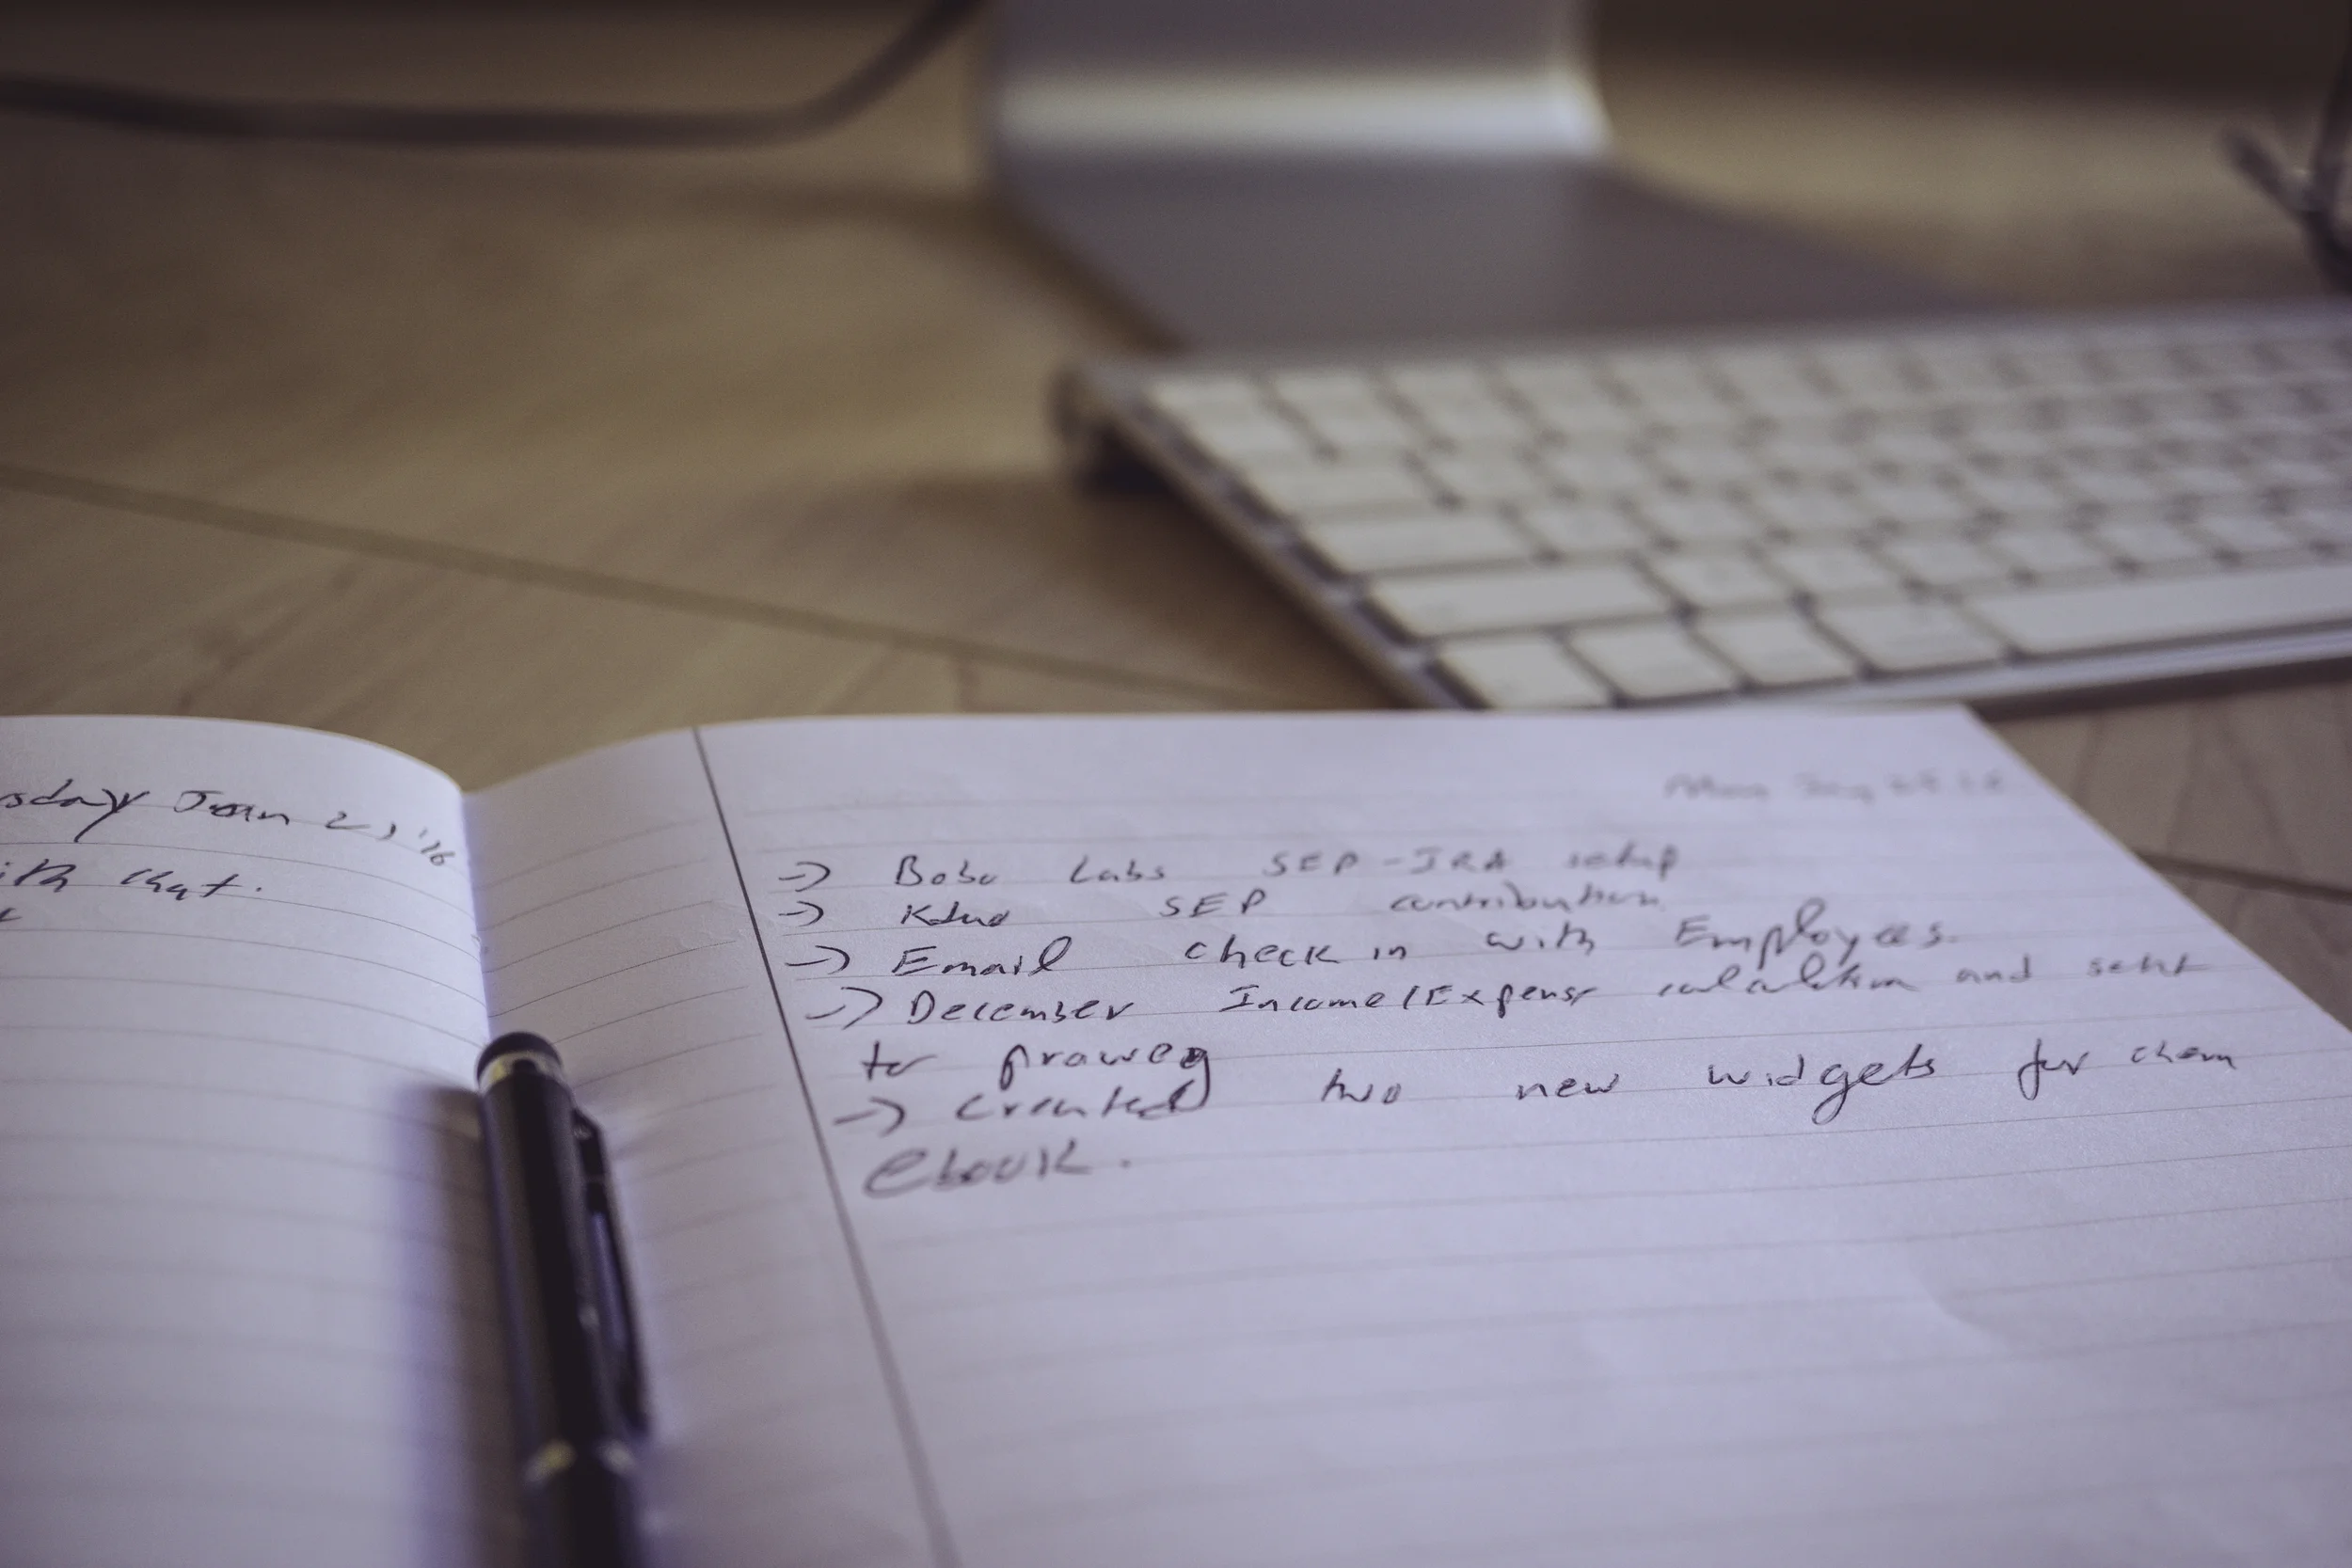 Jan 21, '16
chat.
-> Bobo Labs SEP-IRA setup
-> SEP contribution
-> Email check in with Employees.
-> December Income/Expense calculation and sent
to praweg
-> Created two new widgets for chem
ebook.